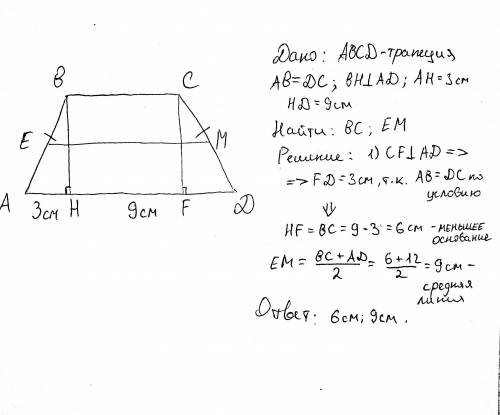 B C
E M
A 3см H 9см F D
Дано: ABCD-трапеция,
AB=DC; BH⊥AD; AH=3см
HD=9см
Найти: BC; EM
Решение: 1) CF⊥AD =>
=> FD=3см, т.к. AB=DC по
условию
⇓
HF=BC=9-3=6см - меньшее
основание
EM= (BC+AD)/2 = (6+12)/2 = 9см -
средняя
линия
Ответ: 6см; 9см.